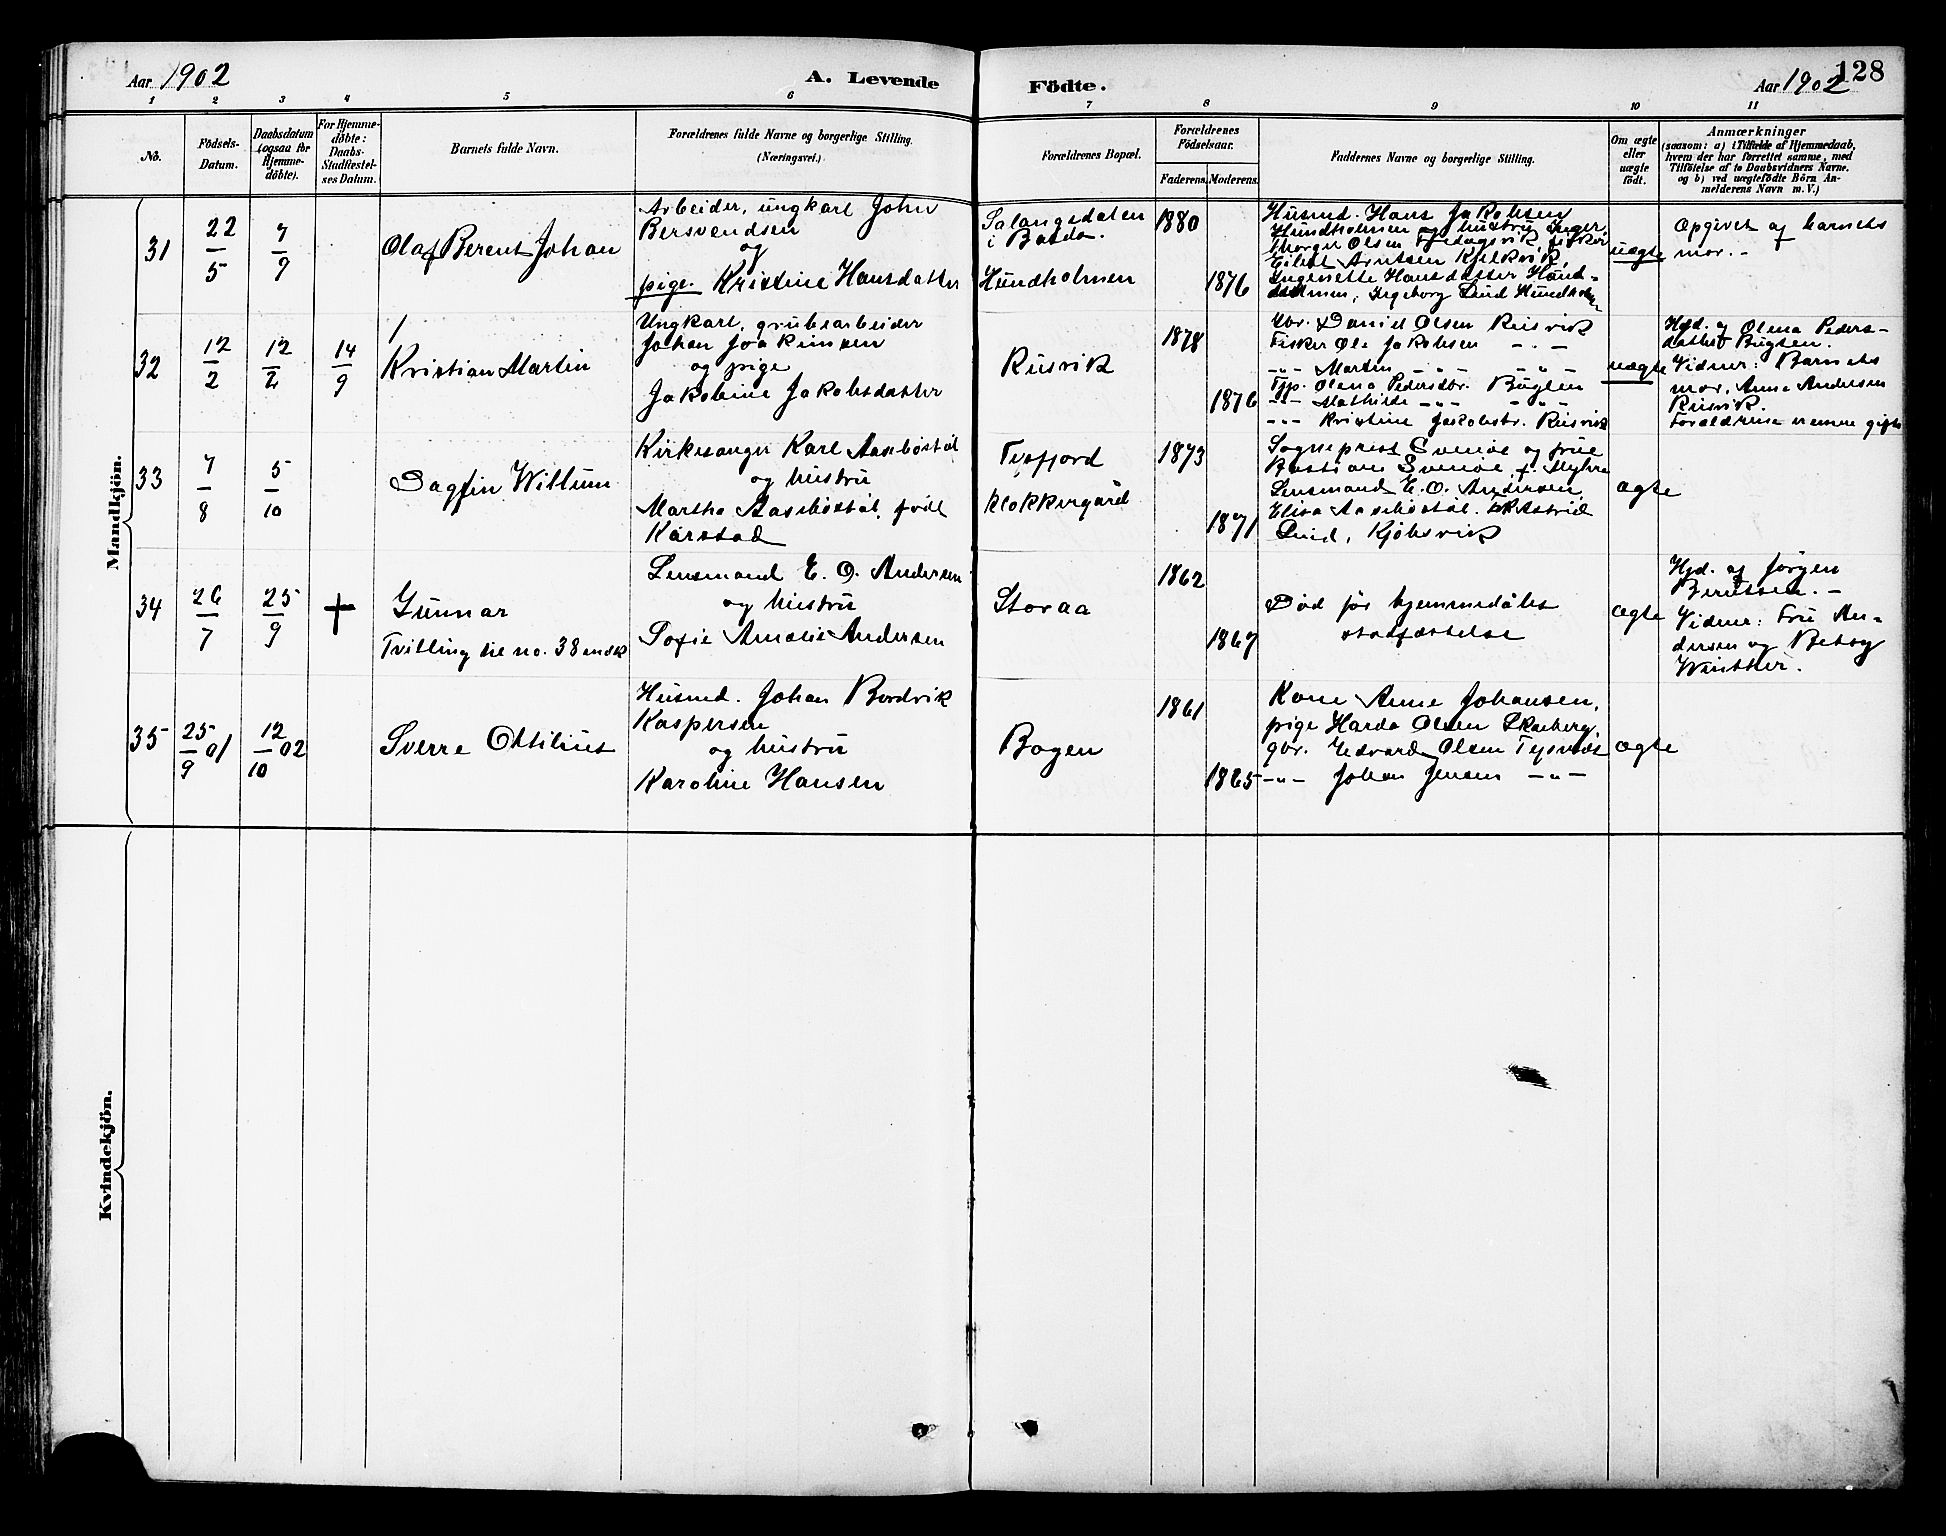 Aar 1902
A. Levende
Födte.
Aar 1902
128
1 2 3 4 5 6 7 8 9 10 11
No.
Födsels-
Datum.
Daabsdatum
(ogsaa for
Hjemme-
döbte).
For Hjemme-
döbte:
Daabs-
Stadfæstel-
ses Datum.
Barnets fulde Navn.
Forældrenes fulde Navne og borgerlige Stilling.
(Næringsvei.)
Forældrenes Bopæl.
Forældrenes
Födselsaar.
Faderens. Moderens.
Faddernes Navne og borgerlige Stilling.
Om ægte
eller
uægte
født.
Anmærkninger
(saasom: a) i Tilfælde af Hjemmedaab,
hvem der har forrettet samme, med
Tilföielse af to Daabsvidners Navne,
og b) ved uægtefödte Börn An-
melderens Navn m. V.)
Mandkjön.
31
22/5
7/9
Olaf Berent Johan
Arbeider, ungkarl John
Bersvendsen
og
pige. Kristine Hansdatter
Salangsdalen
i Bardo.
Hundholmen
1880
1876
Husmd. Hans Jakobsen
Hundholmen og hustru Inger,
Thorger Olsen
Eilert Arntsen Kjelkvik,
Ingenette Hansdatter Hund-
holmen, Ingeborg Lund Hundholm
uægte
Opgivet af barnets
mor. -
32
12/2
12/2
14/9
Kristian Martin
Ungkarl, grubearbeider
Johan Joakimsen
og pige
Jakobine Jakobsdatter
Rusvik
1878
1876
Gbr. Daniel Olsen Rusvik
Fisker Ole Jakobsen - " -
- " - Martin - " - - " -
Tjp. Olena Pedersdtr. Bugten
- " - Mathilde - " - - " -
- " - Kristine Jakobsdtr. Rusvik
uægte
Hjd. af Olena Peders-
datter Bugten.
Vidner: Barnets
mor, Anna Andersen
Rusvik.
Forældrene ere nu gifte
33
7/8
5/10
Dagfin Willum
Kirkesanger Karl Aasebøstøl
og hustru
Martha Aasebøstøl, født
Kårstad
Tysfjord
klokkergård
1873
1871
Sogneprest Svenøe og frue
Svenøe f. Myhre
Lensmand E. O. Andersen,
Elisa Aasebøstøl. Astrid
Lund, Kjøbsvik
ægte
34
26/7
25/9
†
Gunnar
Tvilling til no. 38
Lensmand E. O. Andersen
og hustru
Sofie Amalie Andersen
Storaa
1862
1867
Død før hjemmedåbs
stadfæstelse
ægte
Hjd. af Jørgen
Berntsen. -
Vidner: Fru An-
dersen og Betsy
Winther.
35
25/9 01
12/10 02
Sverre Ottilius
Husmd. Johan Bordvik
Kaspersen
og hustru
Karoline Hansen
Bogen
1861
1865
Kone Anne Johansen,
pige Harda Olsen Skarberg,
gbr. Edvard Olsen Tysnes
- " - Johan Jensen - " -
ægte
Kvindekjön.